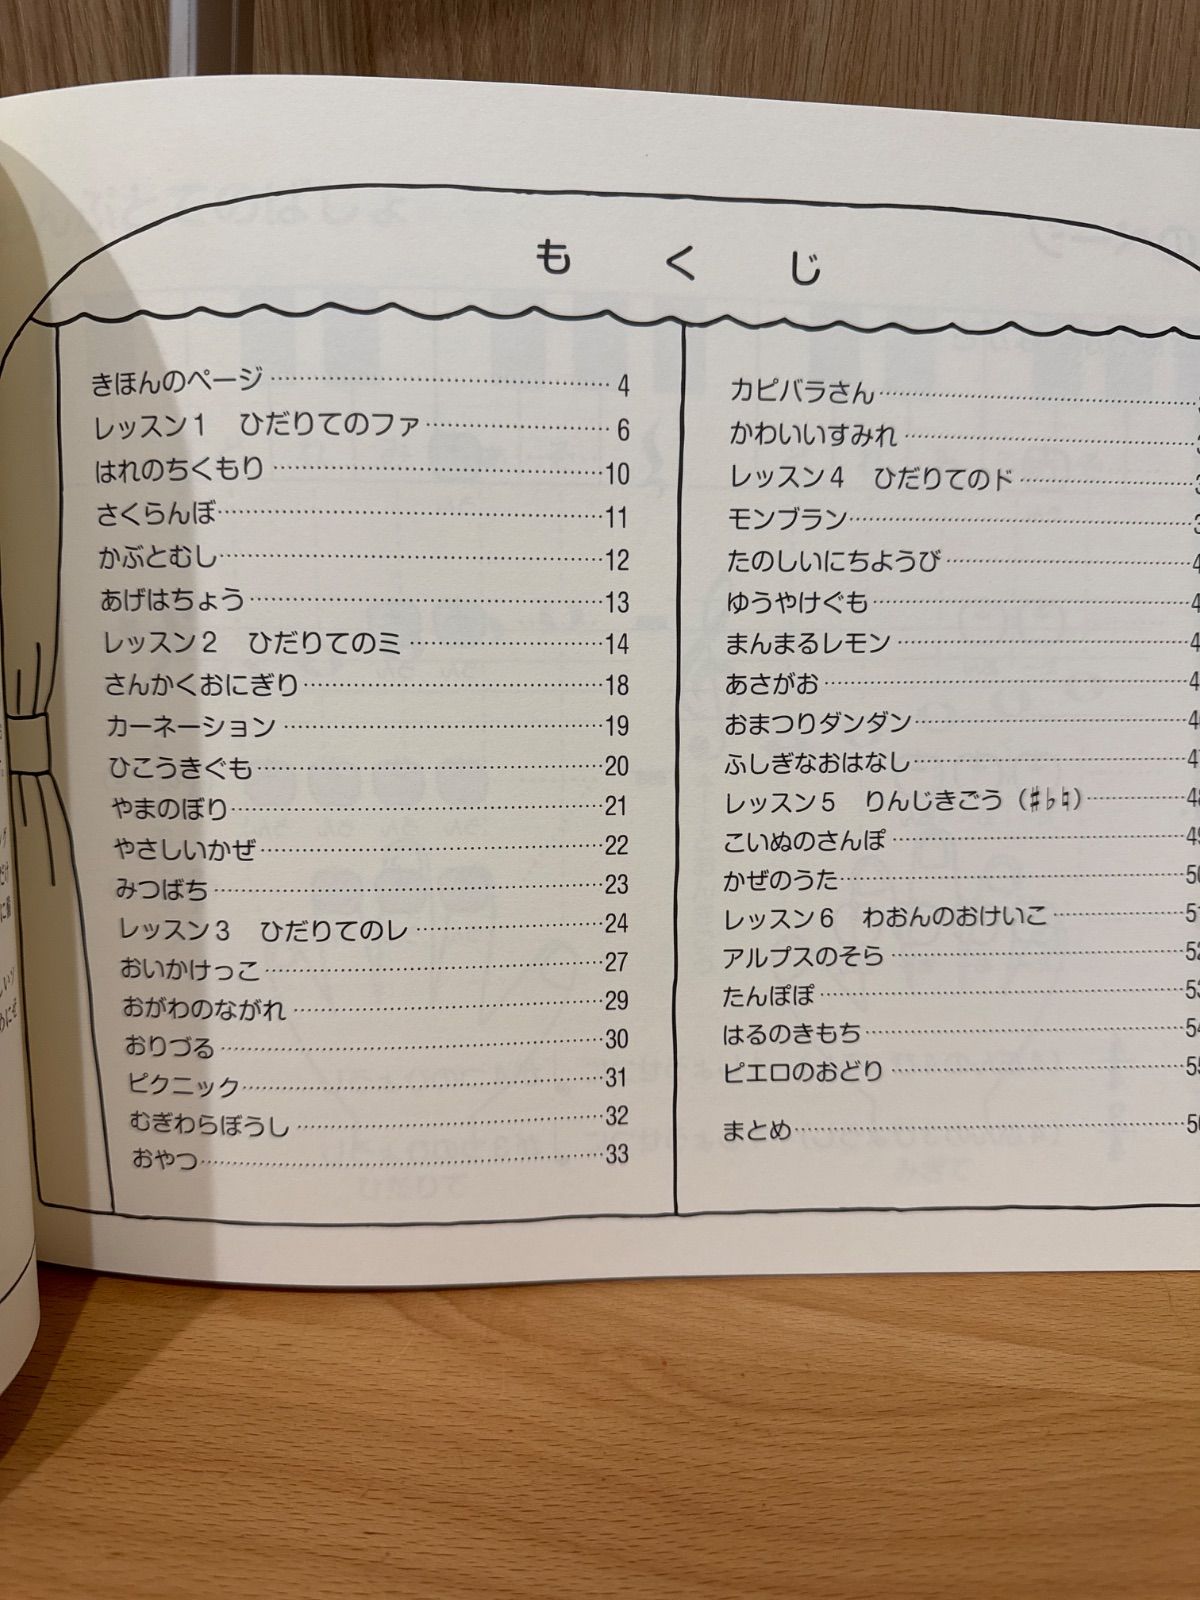 もくじ
きほんのページ 4
レッスン1 ひだりてのファ 6
はれのちくもり 10
さくらんぼ 11
かぶとむし 12
あげはちょう 13
レッスン2 ひだりてのミ 14
さんかくおにぎり 18
カーネーション 19
ひこうきぐも 20
やまのぼり 21
やさしいかぜ 22
みつばち 23
レッスン3 ひだりてのレ 24
おいかけっこ 27
おがわのながれ 29
おりづる 30
ピクニック 31
むぎわらぼうし 32
おやつ 33
カピバラさん
かわいいすみれ
レッスン4 ひだりてのド
モンブラン
たのしいにちようび
ゆうやけぐも
まんまるレモン
あさがお
おまつりダンダン
ふしぎなおはなし 47
レッスン5 りんじきごう(♯♭♮) 48
こいぬのさんぽ 49
かぜのうた 50
レッスン6 わおんのおけいこ 51
アルプスのそら 52
たんぽぽ 53
はるのきもち 54
ピエロのおどり 55
まとめ